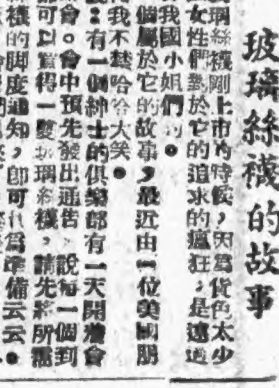 玻璃絲襪的故事
璃絲襪剛上市的時候，因為貨色太少
女性們對於它的追求的瘋狂，是遠過
我國小姐們的。
個屬於它的故事，最近由一位美國朋
我不禁哈哈大笑。
：有一個紳士的俱樂部有一天開農會
會。會中預先發出通告，說每一個到
都可以買得一雙玻璃絲襪，請先將所需
襪的脚度通知，卽可代為準備云云。